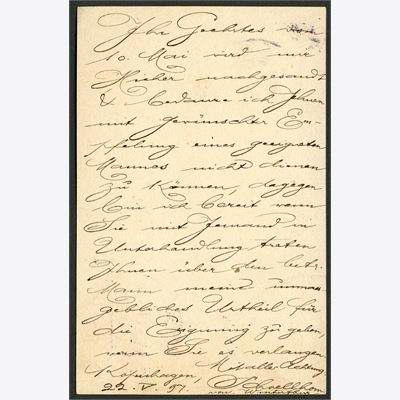 Ihr Geehrtes vom
10. Mai wird mir
hieher nachgesandt
& bedaure ich Ihnen
mit gewünschter Em-
pfelung eines geeigneten
Mannes nicht dienen
zu können, dagegen
bin ich bereit wenn
Sie mit Jemand in
Unterhandlung treten
Ihnen über den betr.
Mann meine unmass-
gebliches Urtheil für
die Eignung zu geben
wenn Sie es verlangen.
Kopenhagen, Mit aller Achtung
22. V. 97.
von Winterthur